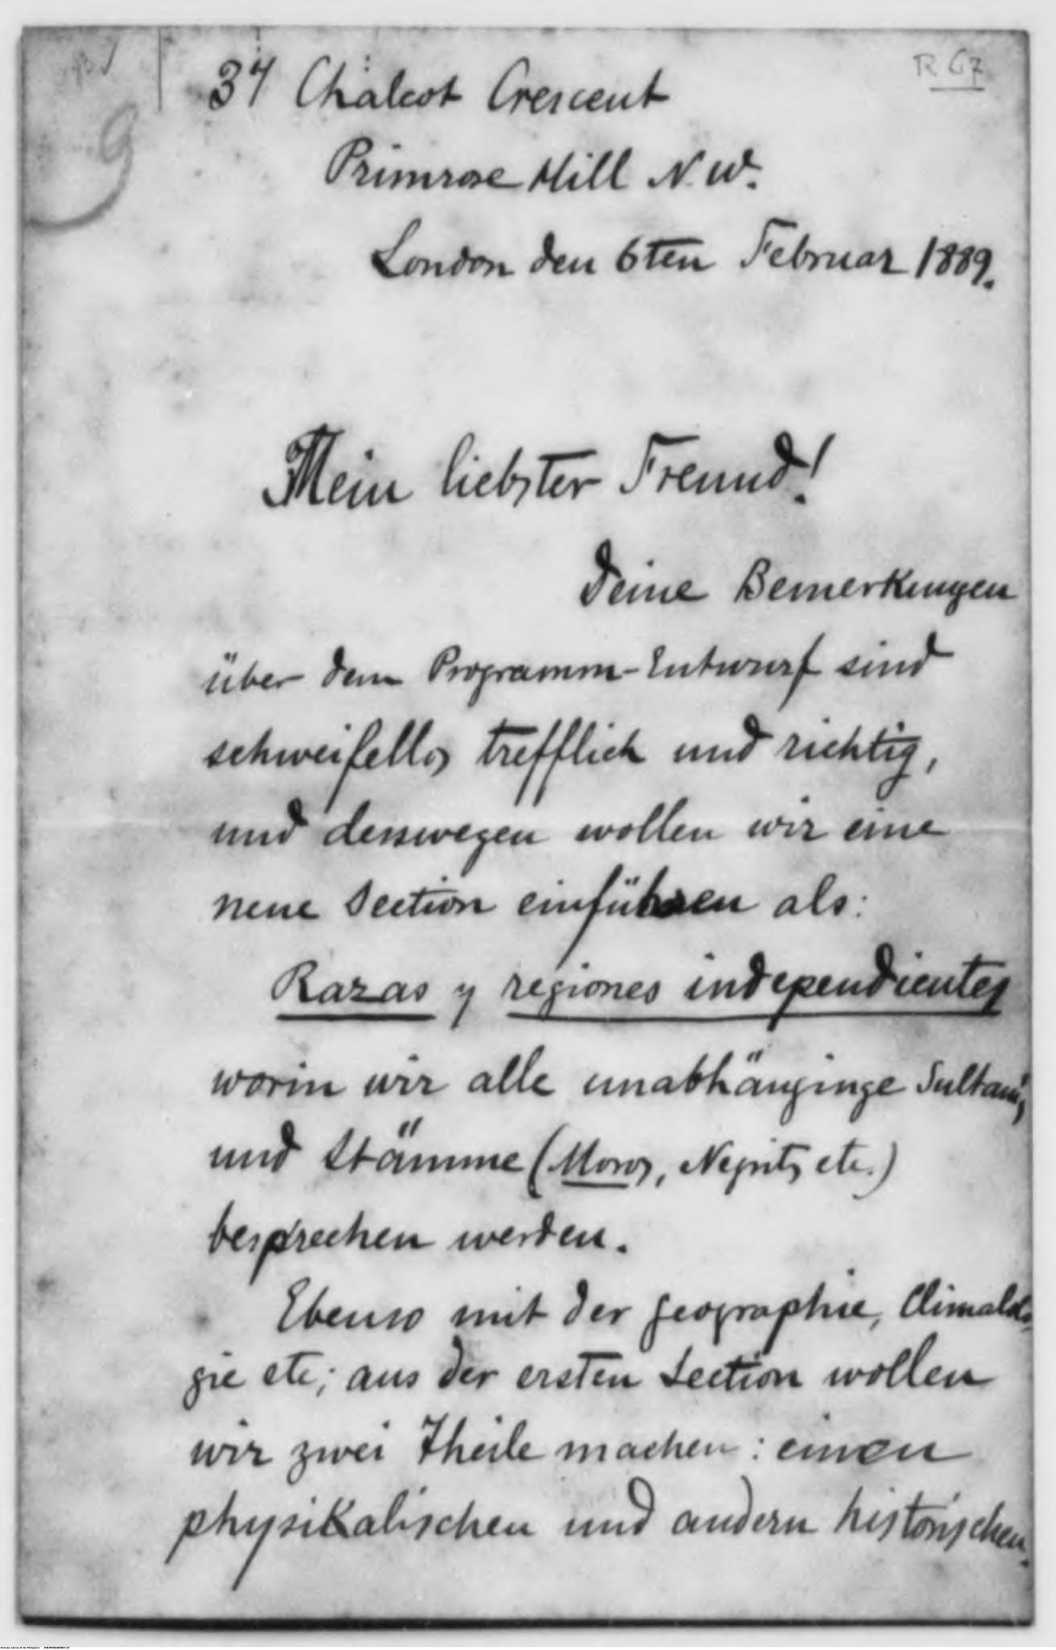 R 67
9
37 Chalcot Crescent
Primrose Hill N. W.
London den 6ten Februar 1889.
Mein liebster Freund!
Deine Bemerkungen
über dem Programm-Entwurf sind
schweifellos trefflich und richtig,
und desswegen wollen wir eine
neue Section einführen als:
Razas y regiones independientes
worin wir alle unabhänginge
und Stämme (Moros, Negritos etc.)
besprechen werden.
Ebenso mit der Geographie, Climatolo
gie etc; aus der ersten Section wollen
wir zwei Theile machen: einen
physikalischen und andern historischen.